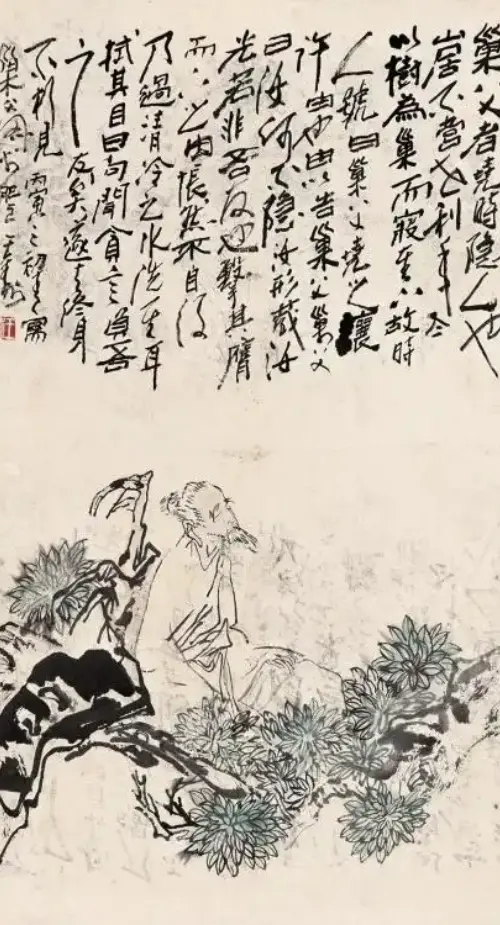 巢父者堯時隱人也
山居不營世利年老
以樹為巢而寢其上故時
人號曰巢父堯之讓
許由也由以告巢父巢父
曰汝何不隱汝形藏汝
光若非吾友也擊其膺
而下之由悵然不自得
乃過清冷之水洗其耳
拭其目曰向聞貪言負吾
之友矣遂去終身
不相見丙寅之初寫
巢父圖於